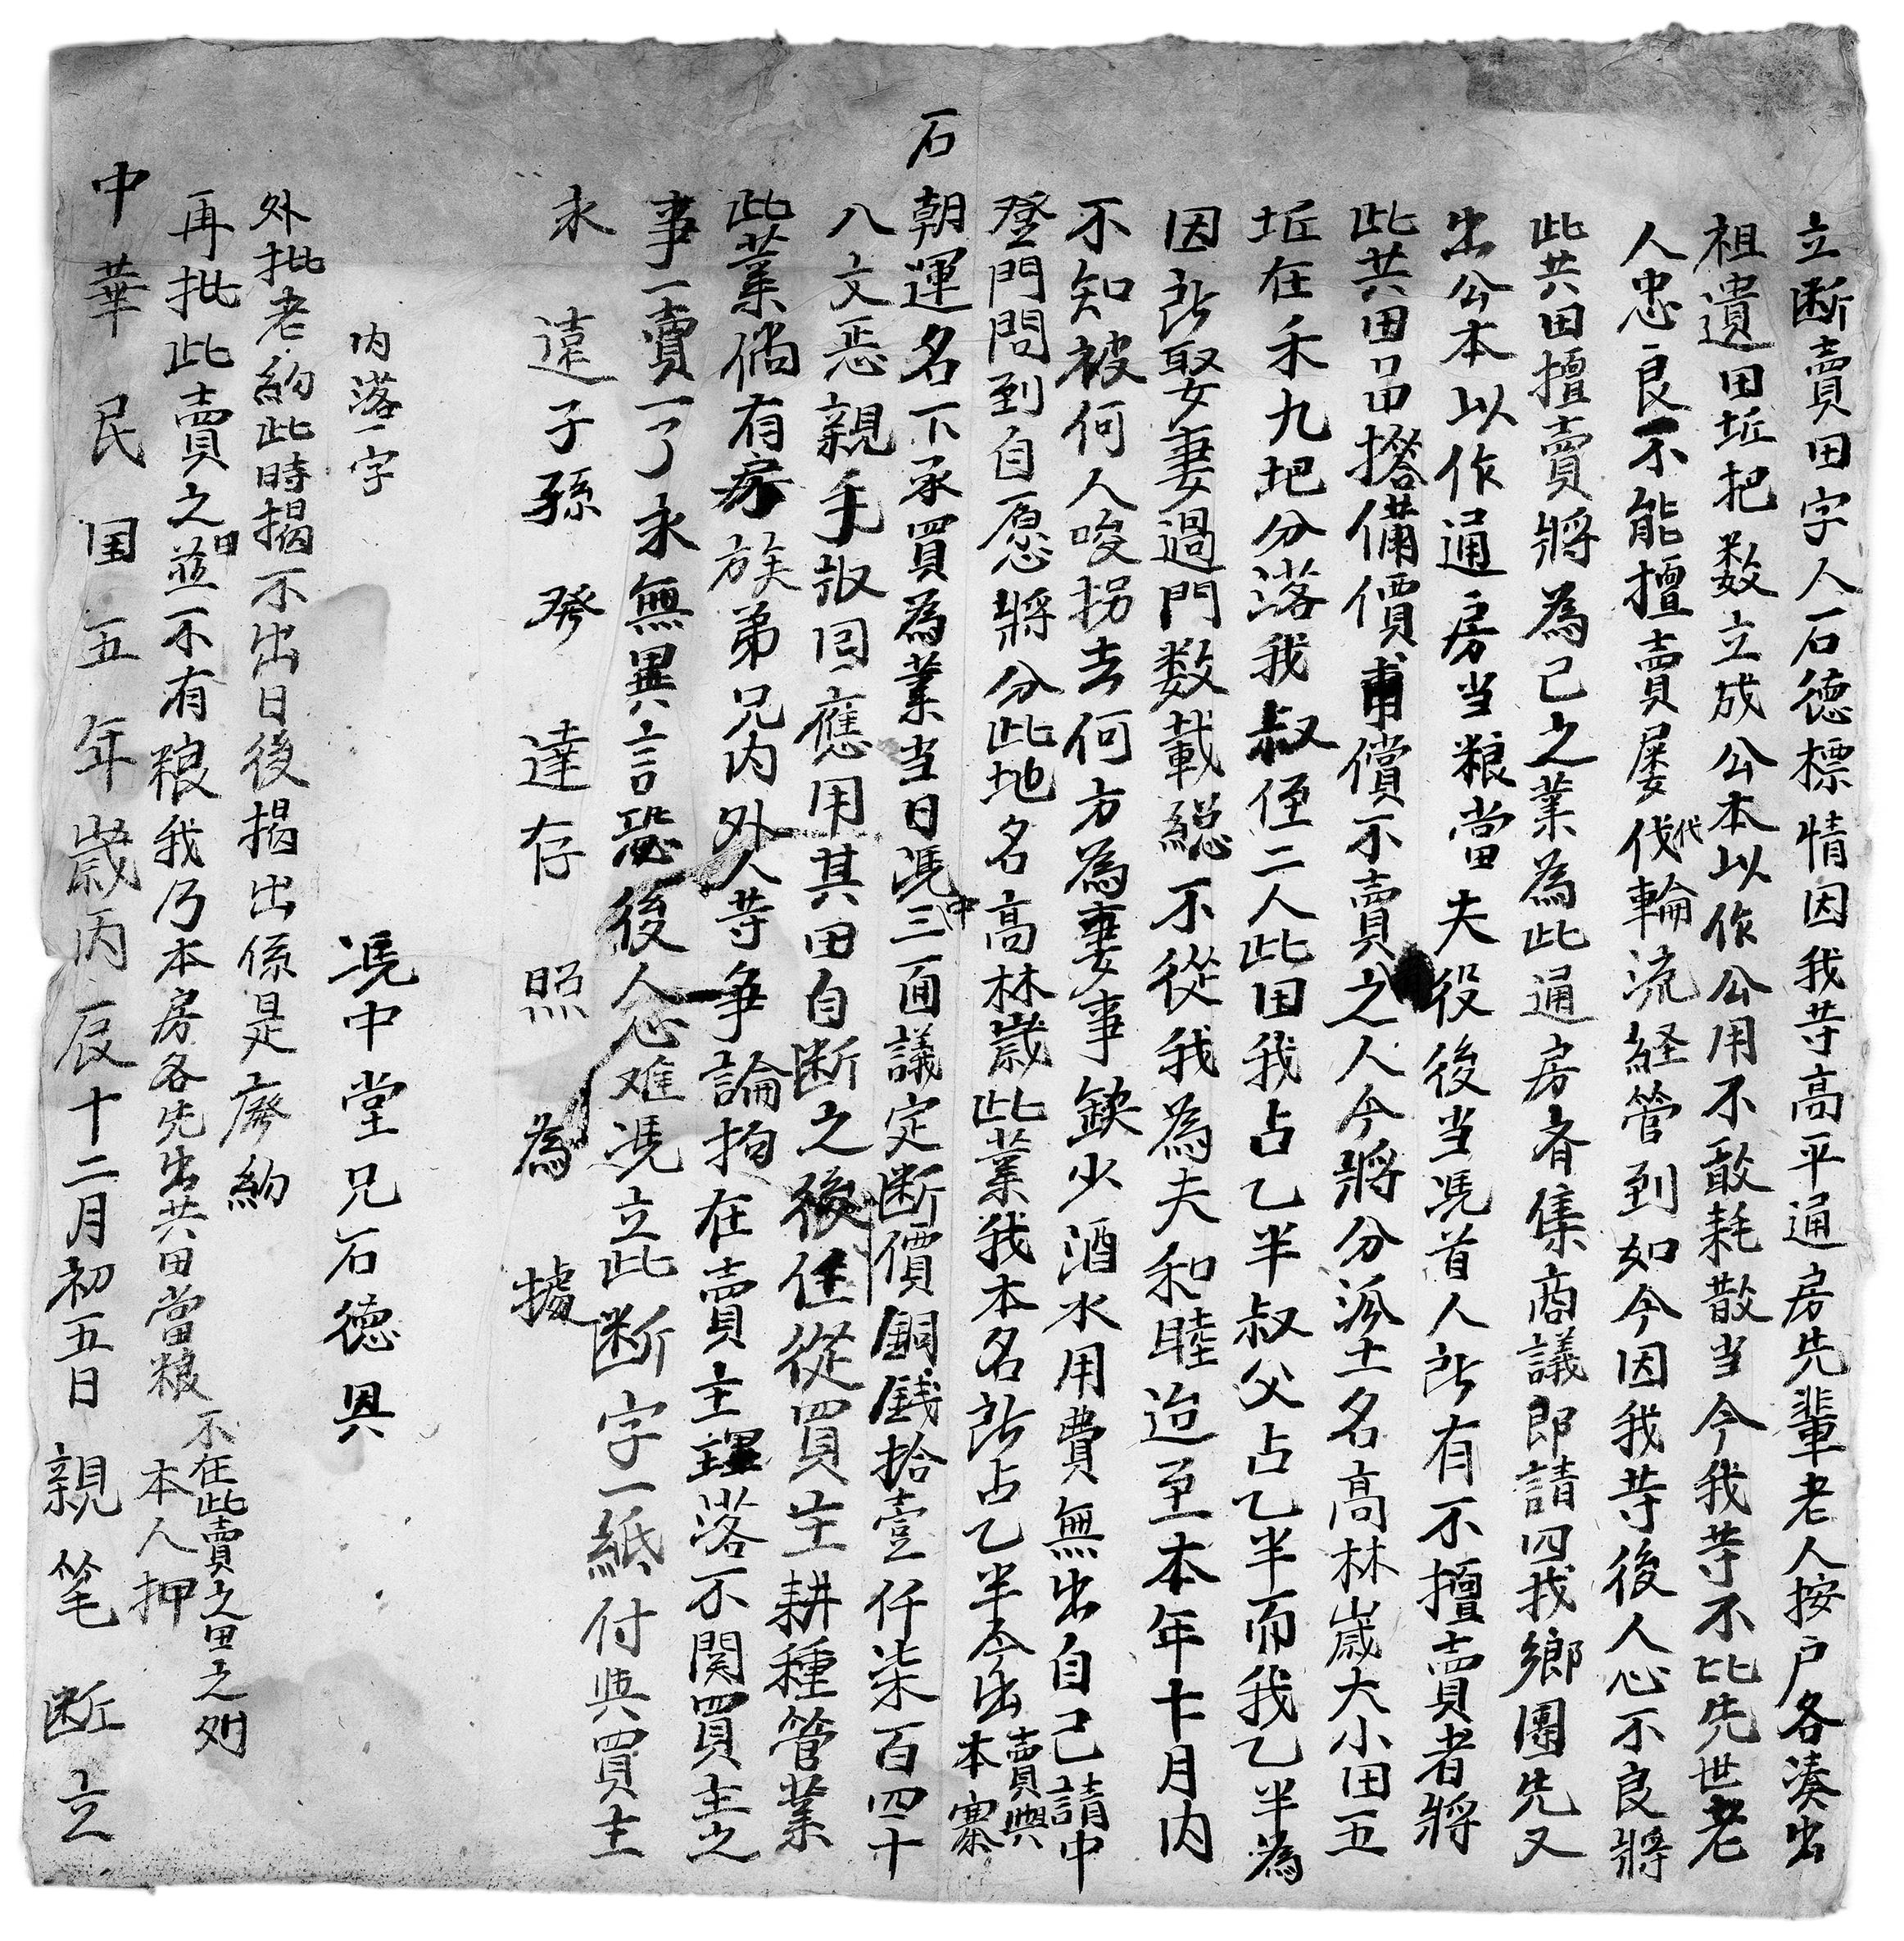 立断賣田字人石德標情因我䓁高平通房先輩老人按户各凑出
祖遺田坵把数立成公本以作公用不敢耗散当今我䓁不比先世老
人忠良不能擅賣屡伐代輪流経管到如今因我䓁後人心不良將
此共田擅賣將為己之業為此通房斉集商議即請四找鄉團先又
出公本以作通房当粮當夫役後当馮首人所有不擅賣者將
此共田品搭備價補償不賣之人今將分派土名高林嵗大小田五
坵在禾九把分落我叔侄二人此田我占乙半叔父占乙半而我乙半為
因所娶妻過門数載総不從我為夫和睦迨至本年十月内
不知被何人唆拐去何方為妻事欽少酒水用費無出自己請中
登門問到自愿將分此地名高林嵗此業我本名所占乙半今出賣與本寨
石朝運名下承買為業当日馮中三面議定断價銅銭拾壹仟柒百四十
八文恶親手㪇囘應用其田自断之後任從買主耕種管業
此業倘有房族弟兄内外人䓁争論拘在賣主理落不関買主之
事一賣一了永無異言恐後人心难馮立此断字一紙付與買主
永遠子孫發達存照為據
内落一字
馮中堂兄石德興
外批老約此時揭不出日後揭出係是廢約
再批此賣之田並不有粮我乃本房各先出共田當粮不在此賣之田之列
本人押
中華民国五年嵗丙辰十二月初五日親笔断立